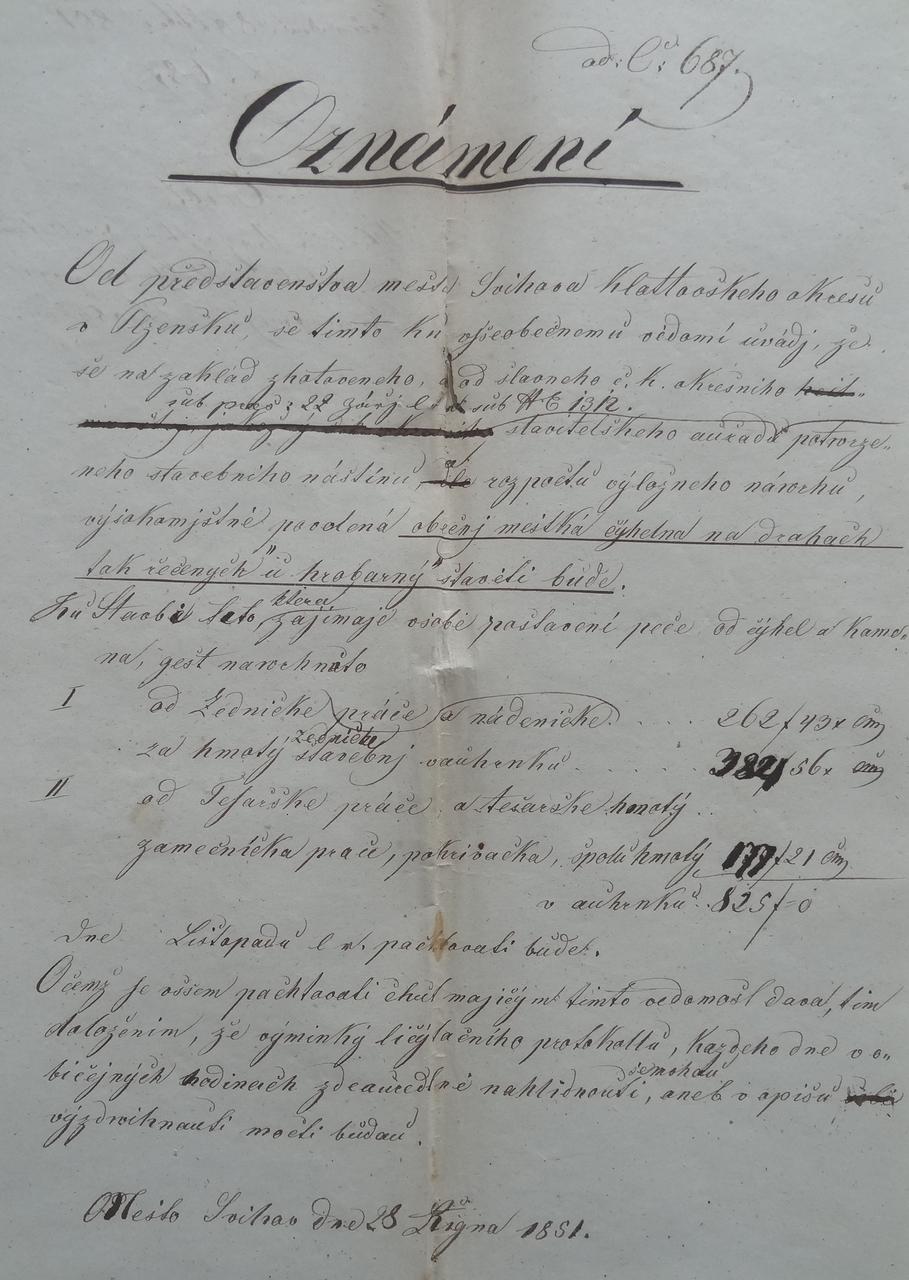 ad: C: 687.
Oznámení
Od představenstva mesta Svihova Klattovskeho okresu
v Plzensku, se timto ku vsseobečnemu vědomí uvádj, že
se na zaklad zhotoveneho, a od slavneho c. k. okresniho
sub praes: 22 Zářj l. r. sub AE 1312.
stavitelskeho auřadu potvrze-
neho stavebniho nástinu, a rozpočtu výložneho návrhu,
výsokomjstně povolená obecnj mestka cyhelna na drahách
tak řečených "u hrobarny" stavěti bude.
Ku Staobě teto, ktera zajímaje osobě postavení pece od cyhel a Kame-
na, gest navrhnuto
I od Zednicke práce a nádenicke 262 f 43 x čm
za hmoty zednicke stavebnj vauhrnku 382 f 56 x čm
II od Tesařske práce a tesarske hmoty
zamečnicka prací, pokrivačka, spolu hmoty 177 f 21 čm
v auhrnku 825 f = 0
dne Listopadu l. r. pachtovati bude.
Očemž se ovssem pachtovati chuť majícým timto vedomost dava, tim
doloženim, že výminky licytačního protokollu, každeho dne v o-
bičejných hodinach zdeauředně nahlidnouti, se mohau aneb v opisu
výzdvihnauti mocti budau.
Mesto Svihov dne 28 Řigna 1851.